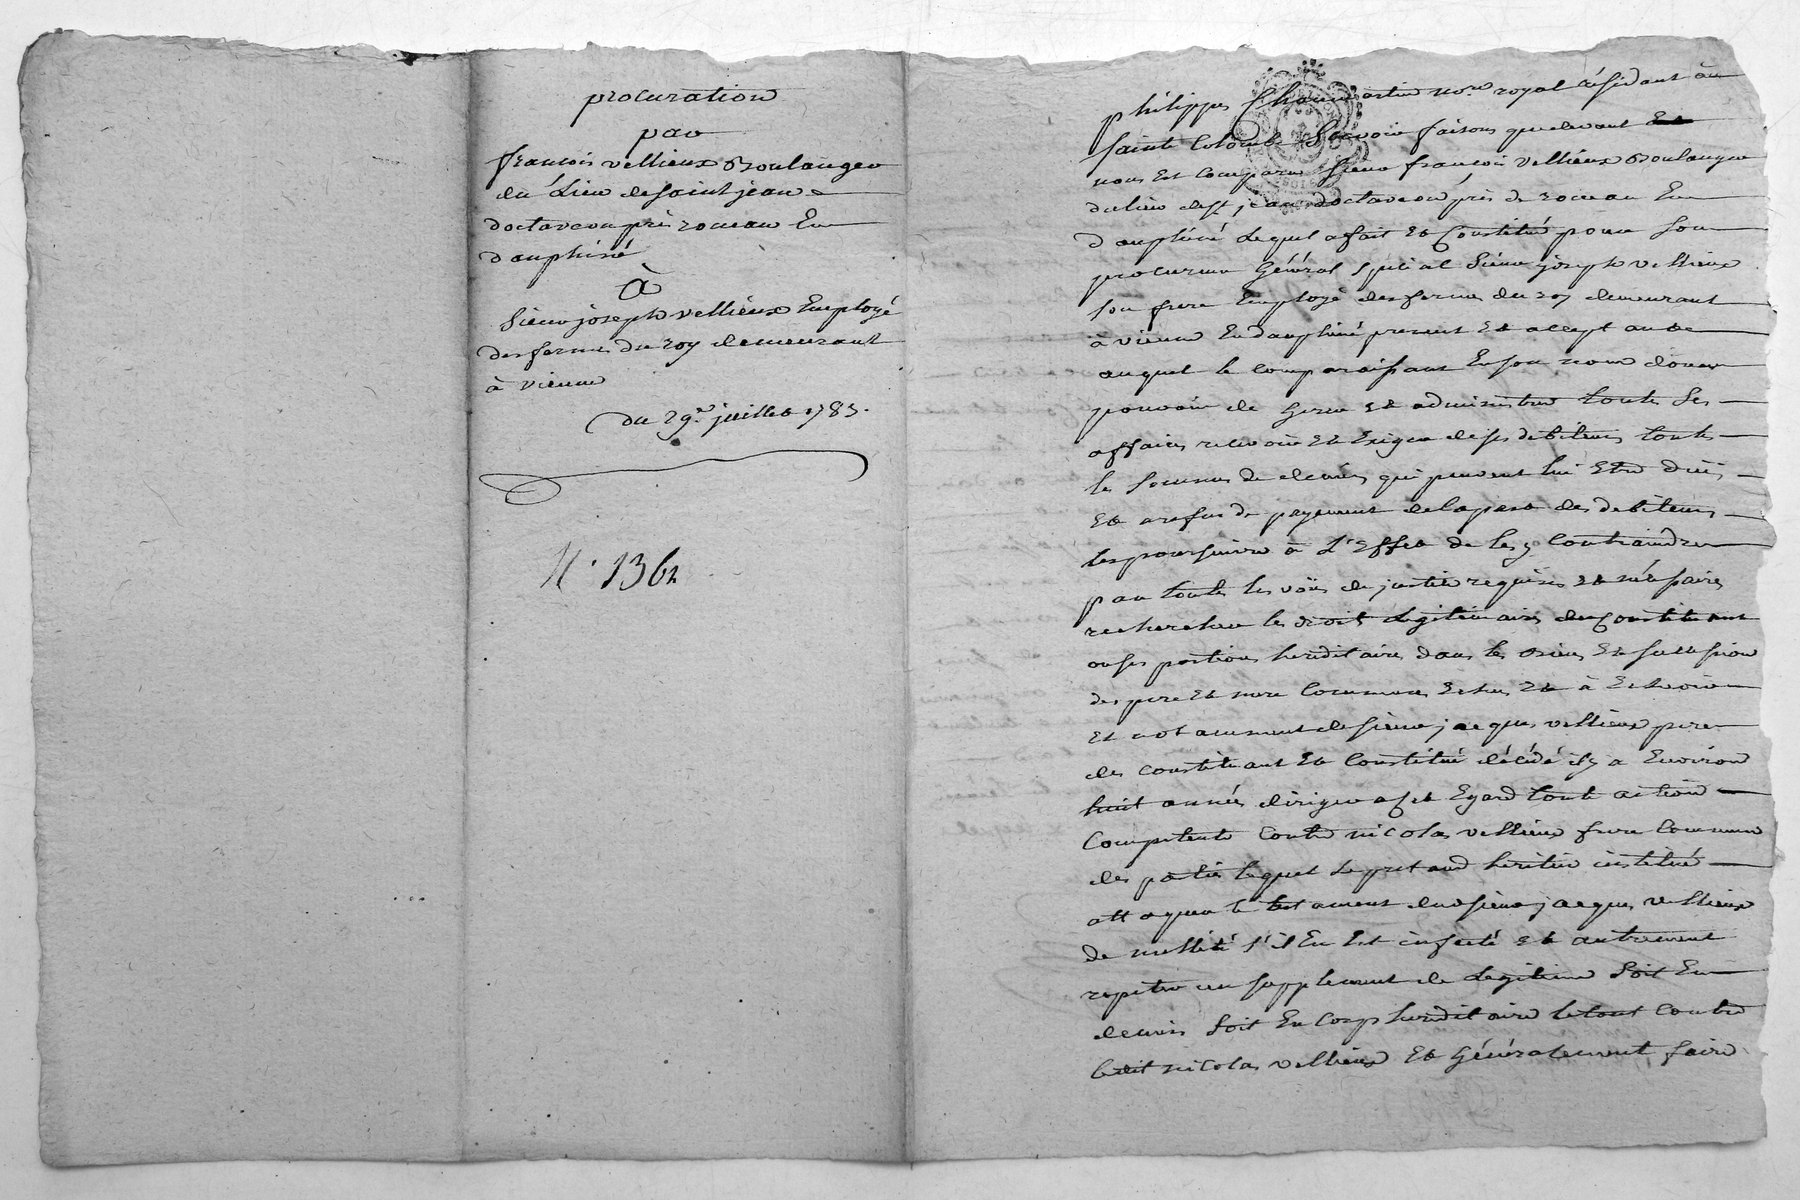 procuration
par
francois vellieux Boulanger
du Lieu de saint jean
doctaveon près roman En
dauphiné
à
Sieur joseph vellieux Employé
des fermes du roy demeurant
à vienne
du 29e juillet 1783.
N. 1362
philippes Chaumartin nore. royal résidant àu
sainte Colombe Sçavoir faisons que devant
nous Est Comparu Sieur françois Vellieux Boulanger
du lieu de st jean doctaveon près de roman En
dauphiné Lequel a fait Et Constitué pour Son
procureur Général Spécial Sieur joseph vellieux
Son frere Employé des fermes du roy demeurant
à vienne En dauphiné present Et acceptant
auquel le Comparaissant En son nom donne
pouvoir de Gerer Et administrer toutes Ses
affaires recevoir Et Exiger de ses debiteurs toutes
les Sommes de deniers qui peuvent lui Etre düës
Et a refus de payement de la part des debiteurs
les poursuivre à L'Effet de les y Contraindre
par toutes les voïes de justice requises Et nécéssaires
rechercher les droits Legitimaires du Constituant
ou ses portions hereditaires dans les Biens Et succession
des pere Et mere Communs Echus Et à Echeoir
Et notamment de sieur jacques vellieux pere
des constituant Et Constitué décédé il y a Environ
huit années diriger a cet Egard toute action
Competente Contre nicolas vellieux frere Commun
des parties lequel Se pretend heritier institué
attaquer le testament dud sieur jacques vellieux
de nullité s'il En Est infecté Et autrement
repeter un supplement de Legitime Soit En
deniers Soit En Corps hereditaire le tout Contre
ledit nicolas vellieux Et Généralement faire